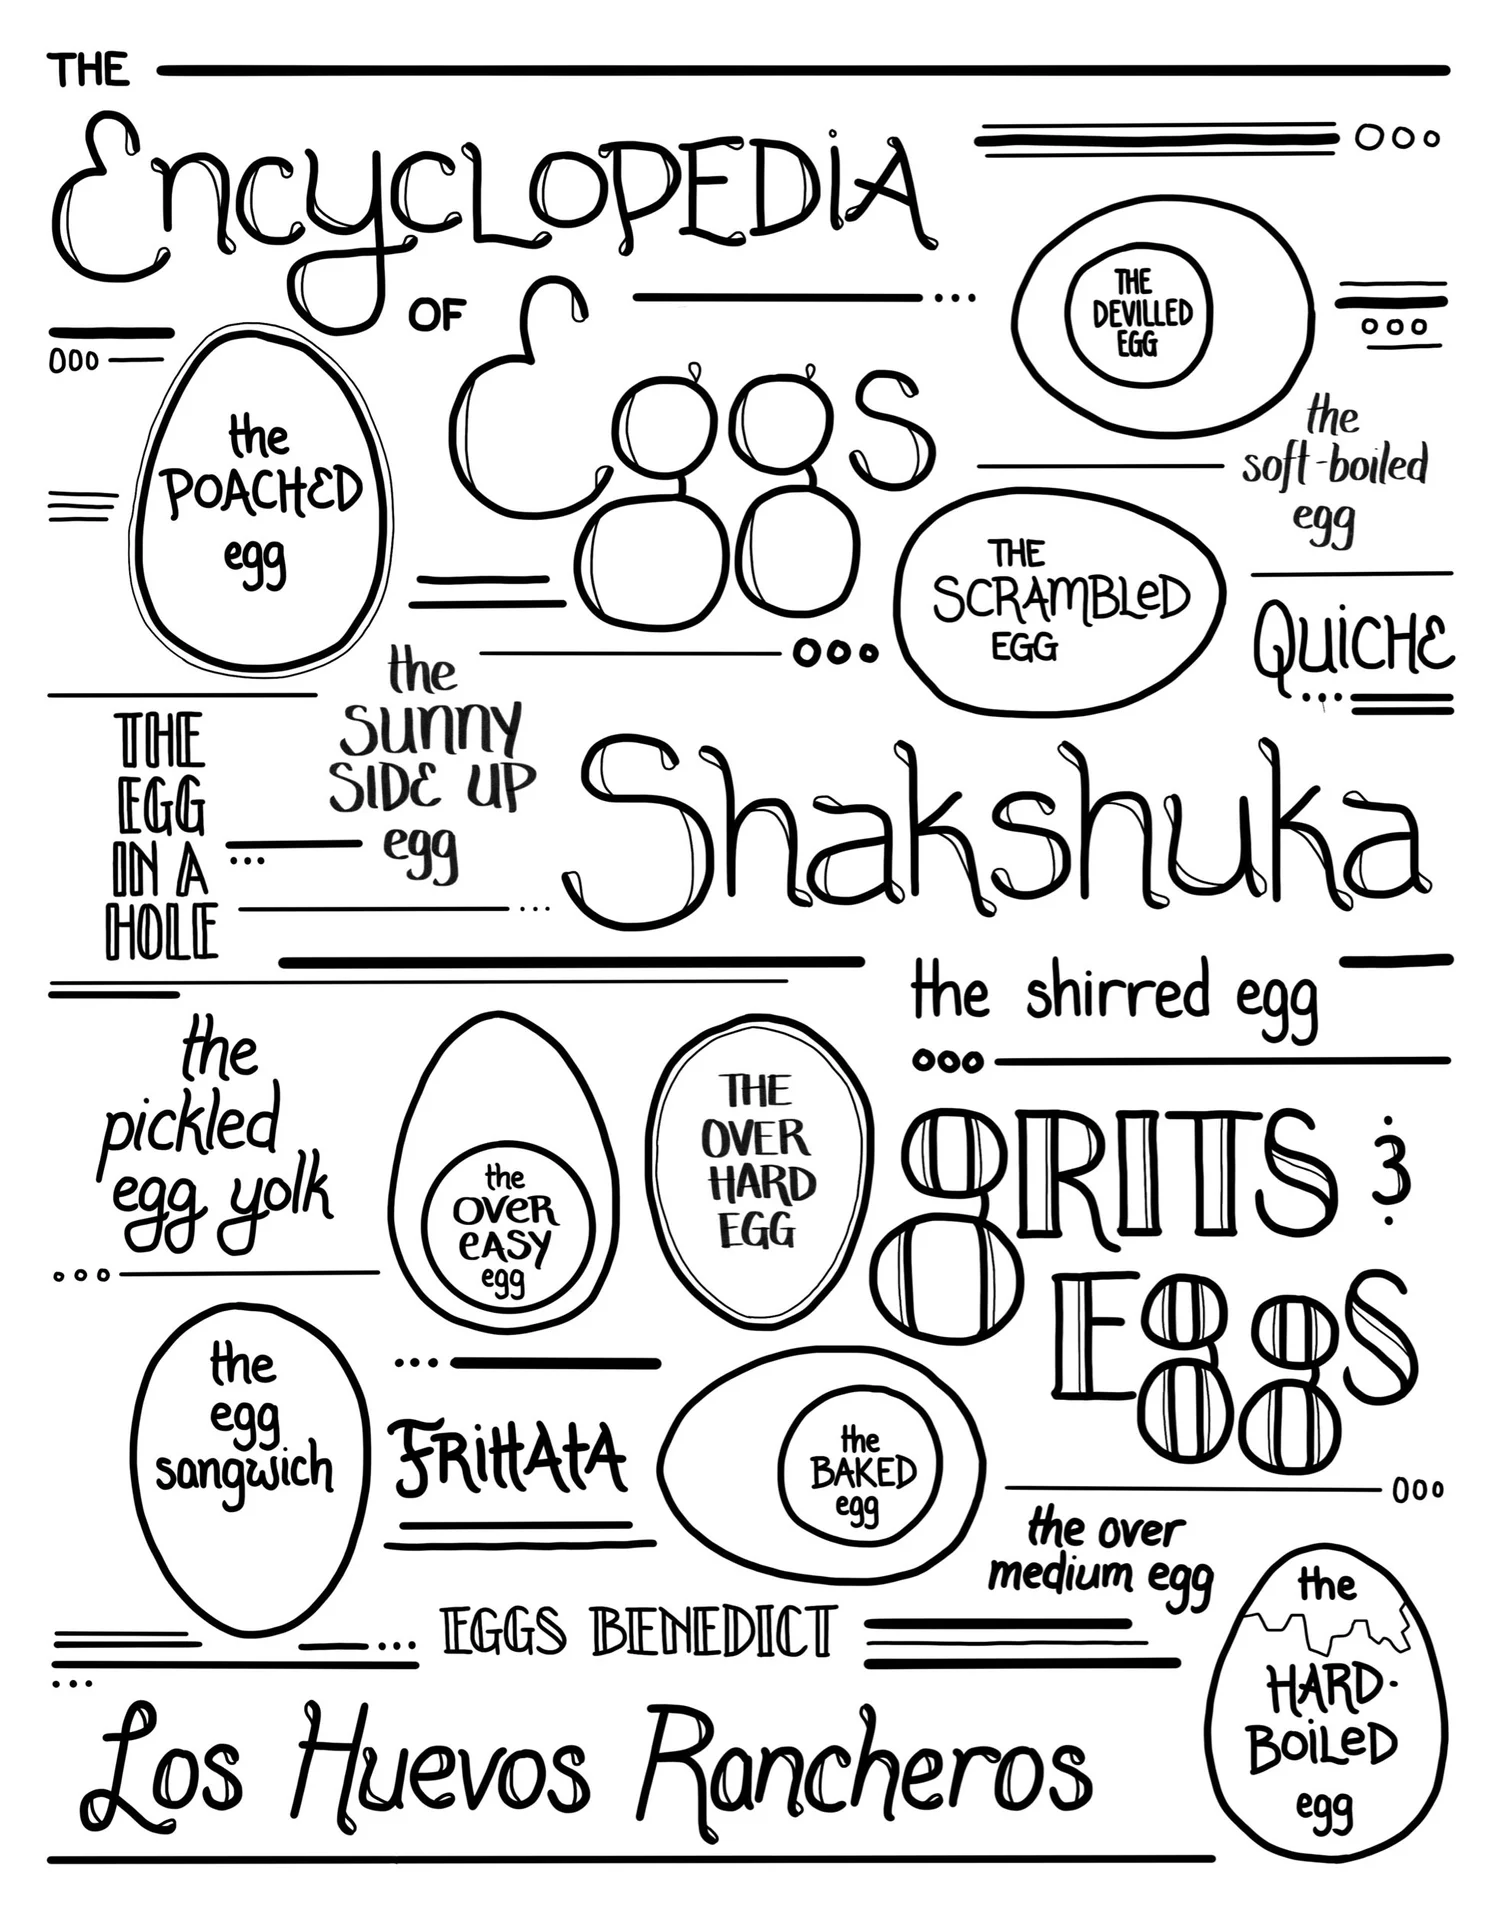 THE
EncycLOPEDiA
OF
Eggs
THE
DEVILLED
EGG
the
POACHED
egg
the
soft-boiled
egg
THE
SCRAMBLeD
EGG
QUiCHE
the
SUNNY
SIDE UP
egg
THE
EGG
IN A
HOLE
Shakshuka
the shirred egg
the
pickled
egg yolk
the
OVeR
eASY
egg
THE
OVER
HARD
EGG
gRITS &
EggS
the
egg
sangwich
FRittAtA
the
BAKED
egg
the over
medium egg
EGGS BENEDICT
the
HARD-
BOiLeD
egg
Los Huevos Rancheros